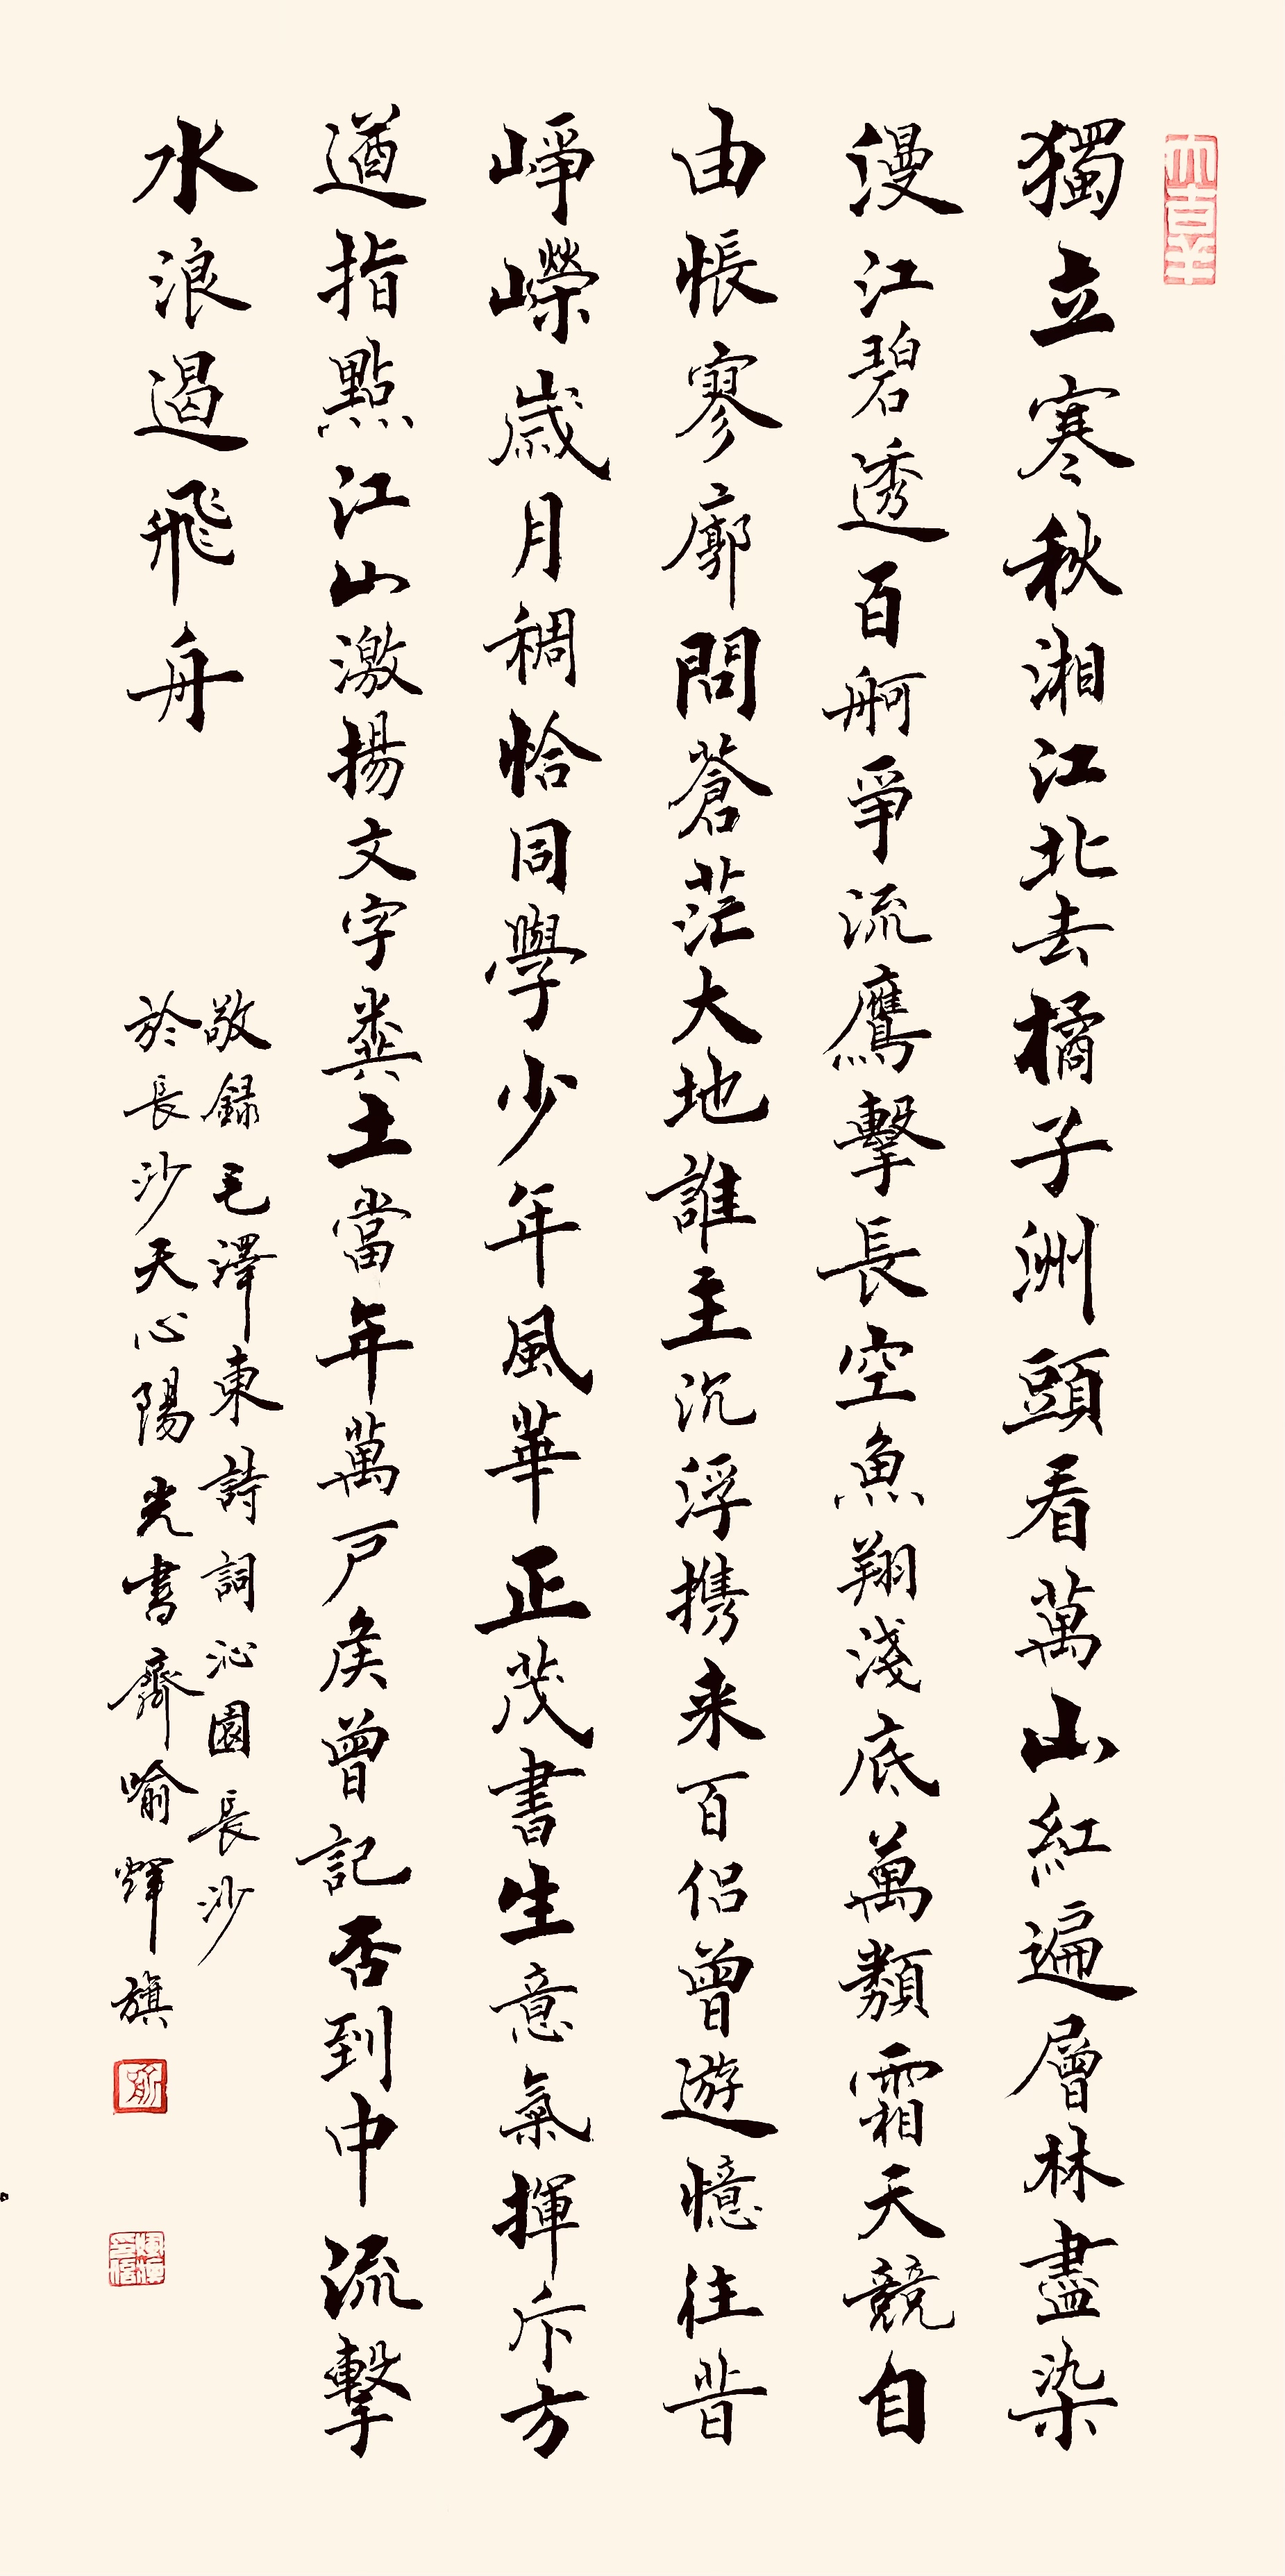 大吉羊
獨立寒秋湘江北去橘子洲頭看萬山紅遍層林盡染
漫江碧透百舸爭流鷹擊長空魚翔淺底萬類霜天競自
由悵寥廓問蒼茫大地誰主沉浮攜来百侣曾遊憶往昔
崢嶸歲月稠恰同學少年風華正茂書生意氣揮斥方
遒指點江山激揚文字糞土當年萬户矦曾記否到中流擊
水浪遏飛舟
敬録毛澤東詩詞沁園長沙
於長沙天心陽光書齊喻輝旗
喻